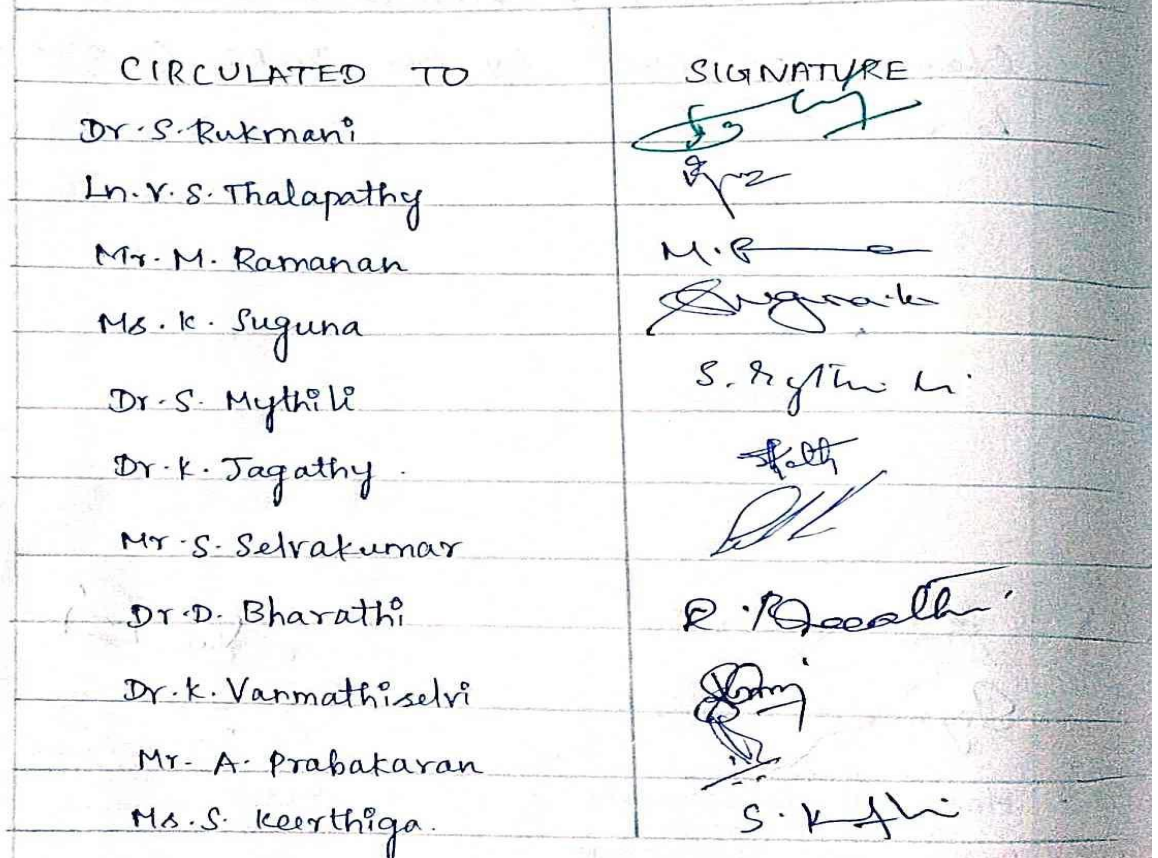 CIRCULATED TO SIGNATURE
Dr. S. Rukmani
Ln. V. S. Thalapathy
Mr. M. Ramanan M.
Ms. K. Suguna Suguna.k
Dr. S. Mythili S.
Dr. K. Jagathy.
Mr. S. Selvakumar
Dr. D. Bharathi
Dr. K. Vanmathiselvi
Mr. A. Prabakaran
Ms. S. Keerthiga. S.